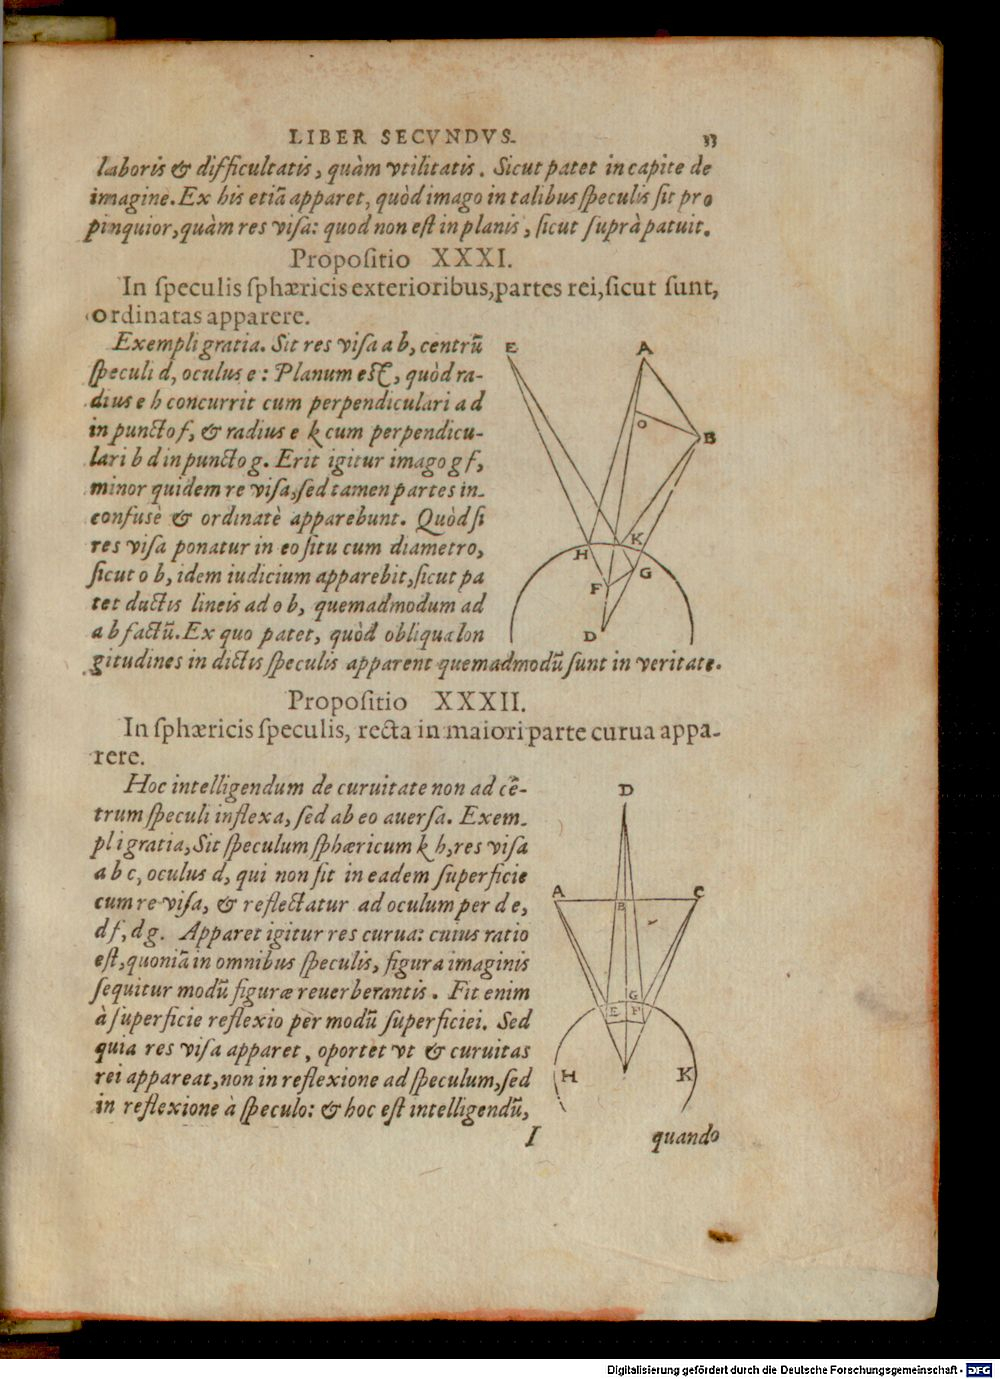 LIBER SECVNDVS. 33
laboris & difficultatis, quàm vtilitatis. Sicut patet in capite de
imagine. Ex his etiã apparet, quòd imago in talibus speculis sit pro
pinquior, quàm res visa: quod non est in planis, sicut suprà patuit.
Propositio XXXI.
In speculis sphæricis exterioribus, partes rei, sicut sunt,
ordinatas apparere.
Exempli gratia. Sit res visa a b, centrũ
speculi d, oculus e: Planum est, quòd ra-
dius e h concurrit cum perpendiculari a d
in puncto f, & radius e k cum perpendicu-
lari b d in puncto g. Erit igitur imago g f,
minor quidem re visa, sed tamen partes in-
confusè & ordinatè apparebunt. Quòd si
res visa ponatur in eo situ cum diametro,
sicut o b, idem iudicium apparebit, sicut pa
tet ductis lineis ad o b, quemadmodum ad
a b factũ. Ex quo patet, quòd obliqua lon
gitudines in dictis speculis apparent quemadmodũ sunt in veritate.
E A
O
B
H K
F G
D
Propositio XXXII.
In sphæricis speculis, recta in maiori parte curua appa-
rere.
Hoc intelligendum de curuitate non ad cẽ-
trum speculi inflexa, sed ab eo auersa. Exem-
pli gratia, Sit speculum sphæricum k h, res visa
a b c, oculus d, qui non sit in eadem superficie
cum re visa, & reflectatur ad oculum per d e,
d f, d g. Apparet igitur res curua: cuius ratio
est, quoniã in omnibus speculis, figura imaginis
sequitur modũ figuræ reuerberantis. Fit enim
à superficie reflexio per modũ superficiei. Sed
quia res visa apparet, oportet vt & curuitas
rei appareat, non in reflexione ad speculum, sed
in reflexione à speculo: & hoc est intelligendũ,
D
A B C
G
E F
H K
I quando
Digitalisierung gefördert durch die Deutsche Forschungsgemeinschaft - DFG